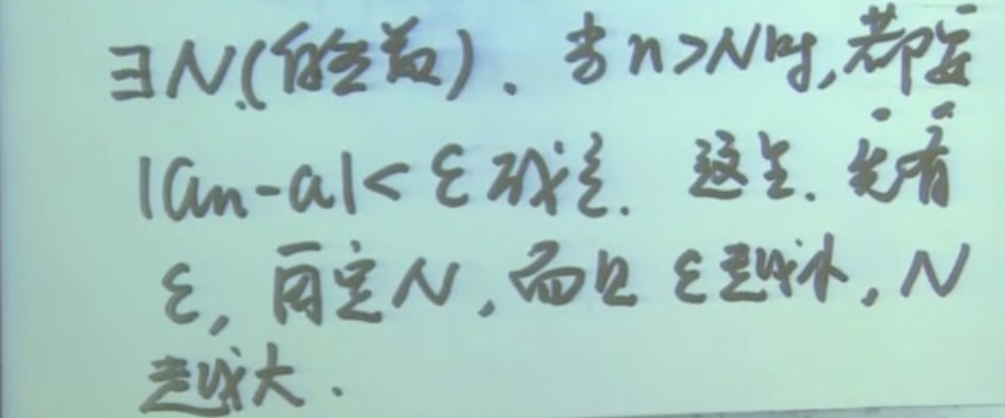 ∃N(自然数). 当n>N时,都有
|an-a|<ε成立. 这里. 先有
ε, 再定N, 而且 ε越小, N
越大.